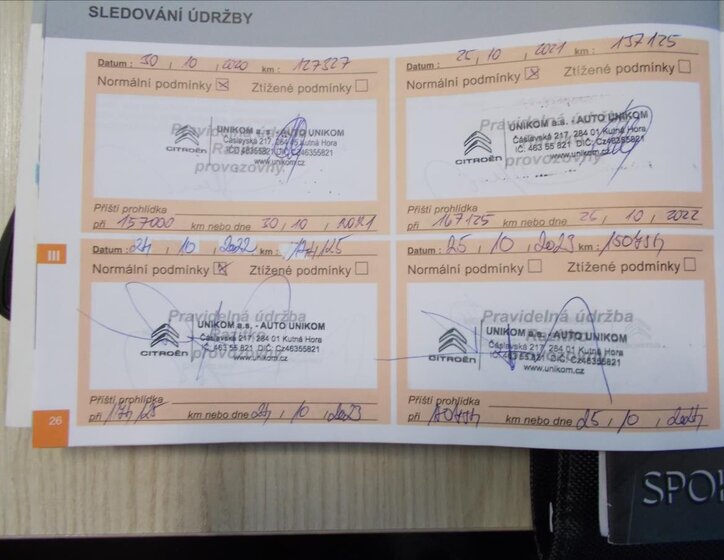 SLEDOVÁNÍ ÚDRŽBY
Datum : 30 , 10 , 2020 km : 127327
Normální podmínky Ztížené podmínky
Pravidelná údržba
Razítko
provozovny
UNIKOM a.s. - AUTO UNIKOM
Čáslavská 217, 284 01 Kutná Hora
IČ: 463 55 821 DIČ: Cz46355821
www.unikom.cz
CITROËN
Příští prohlídka
při 157000 km nebo dne 30 , 10 , 2021
Datum : 25 , 10 , 2021 km : 137125
Normální podmínky Ztížené podmínky
Pravidelná údržba
provozovny
UNIKOM a.s. - AUTO UNIKOM
Čáslavská 217, 284 01 Kutná Hora
IČ: 463 55 821 DIČ: Cz46355821
www.unikom.cz
CITROËN
Příští prohlídka
při 167125 km nebo dne 26 , 10 , 2022
III
Datum : 24 , 10 , 2022 km :
Normální podmínky Ztížené podmínky
Pravidelná údržba
Razítko
provozovny
UNIKOM a.s. - AUTO UNIKOM
Čáslavská 217, 284 01 Kutná Hora
IČ: 463 55 821 DIČ: Cz46355821
www.unikom.cz
CITROËN
Příští prohlídka
při km nebo dne 24 , 10 , 2023
Datum : 25 , 10 , 2023 km :
Normální podmínky Ztížené podmínky
Pravidelná údržba
Razítko
UNIKOM a.s. - AUTO UNIKOM
Čáslavská 217, 284 01 Kutná Hora
IČ: 463 55 821 DIČ: Cz46355821
www.unikom.cz
CITROËN
Příští prohlídka
při km nebo dne 25 , 10 , 2024
26